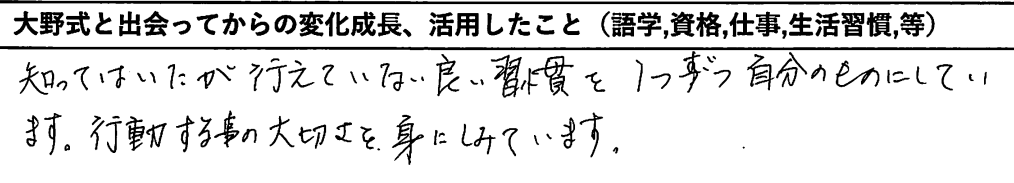 大野式と出会ってからの変化成長、活用したこと（語学,資格,仕事,生活習慣,等）
知ってはいたが行えていない良い習慣を1つずつ自分のものにしてい
ます。行動する事の大切さを、身にしみています。